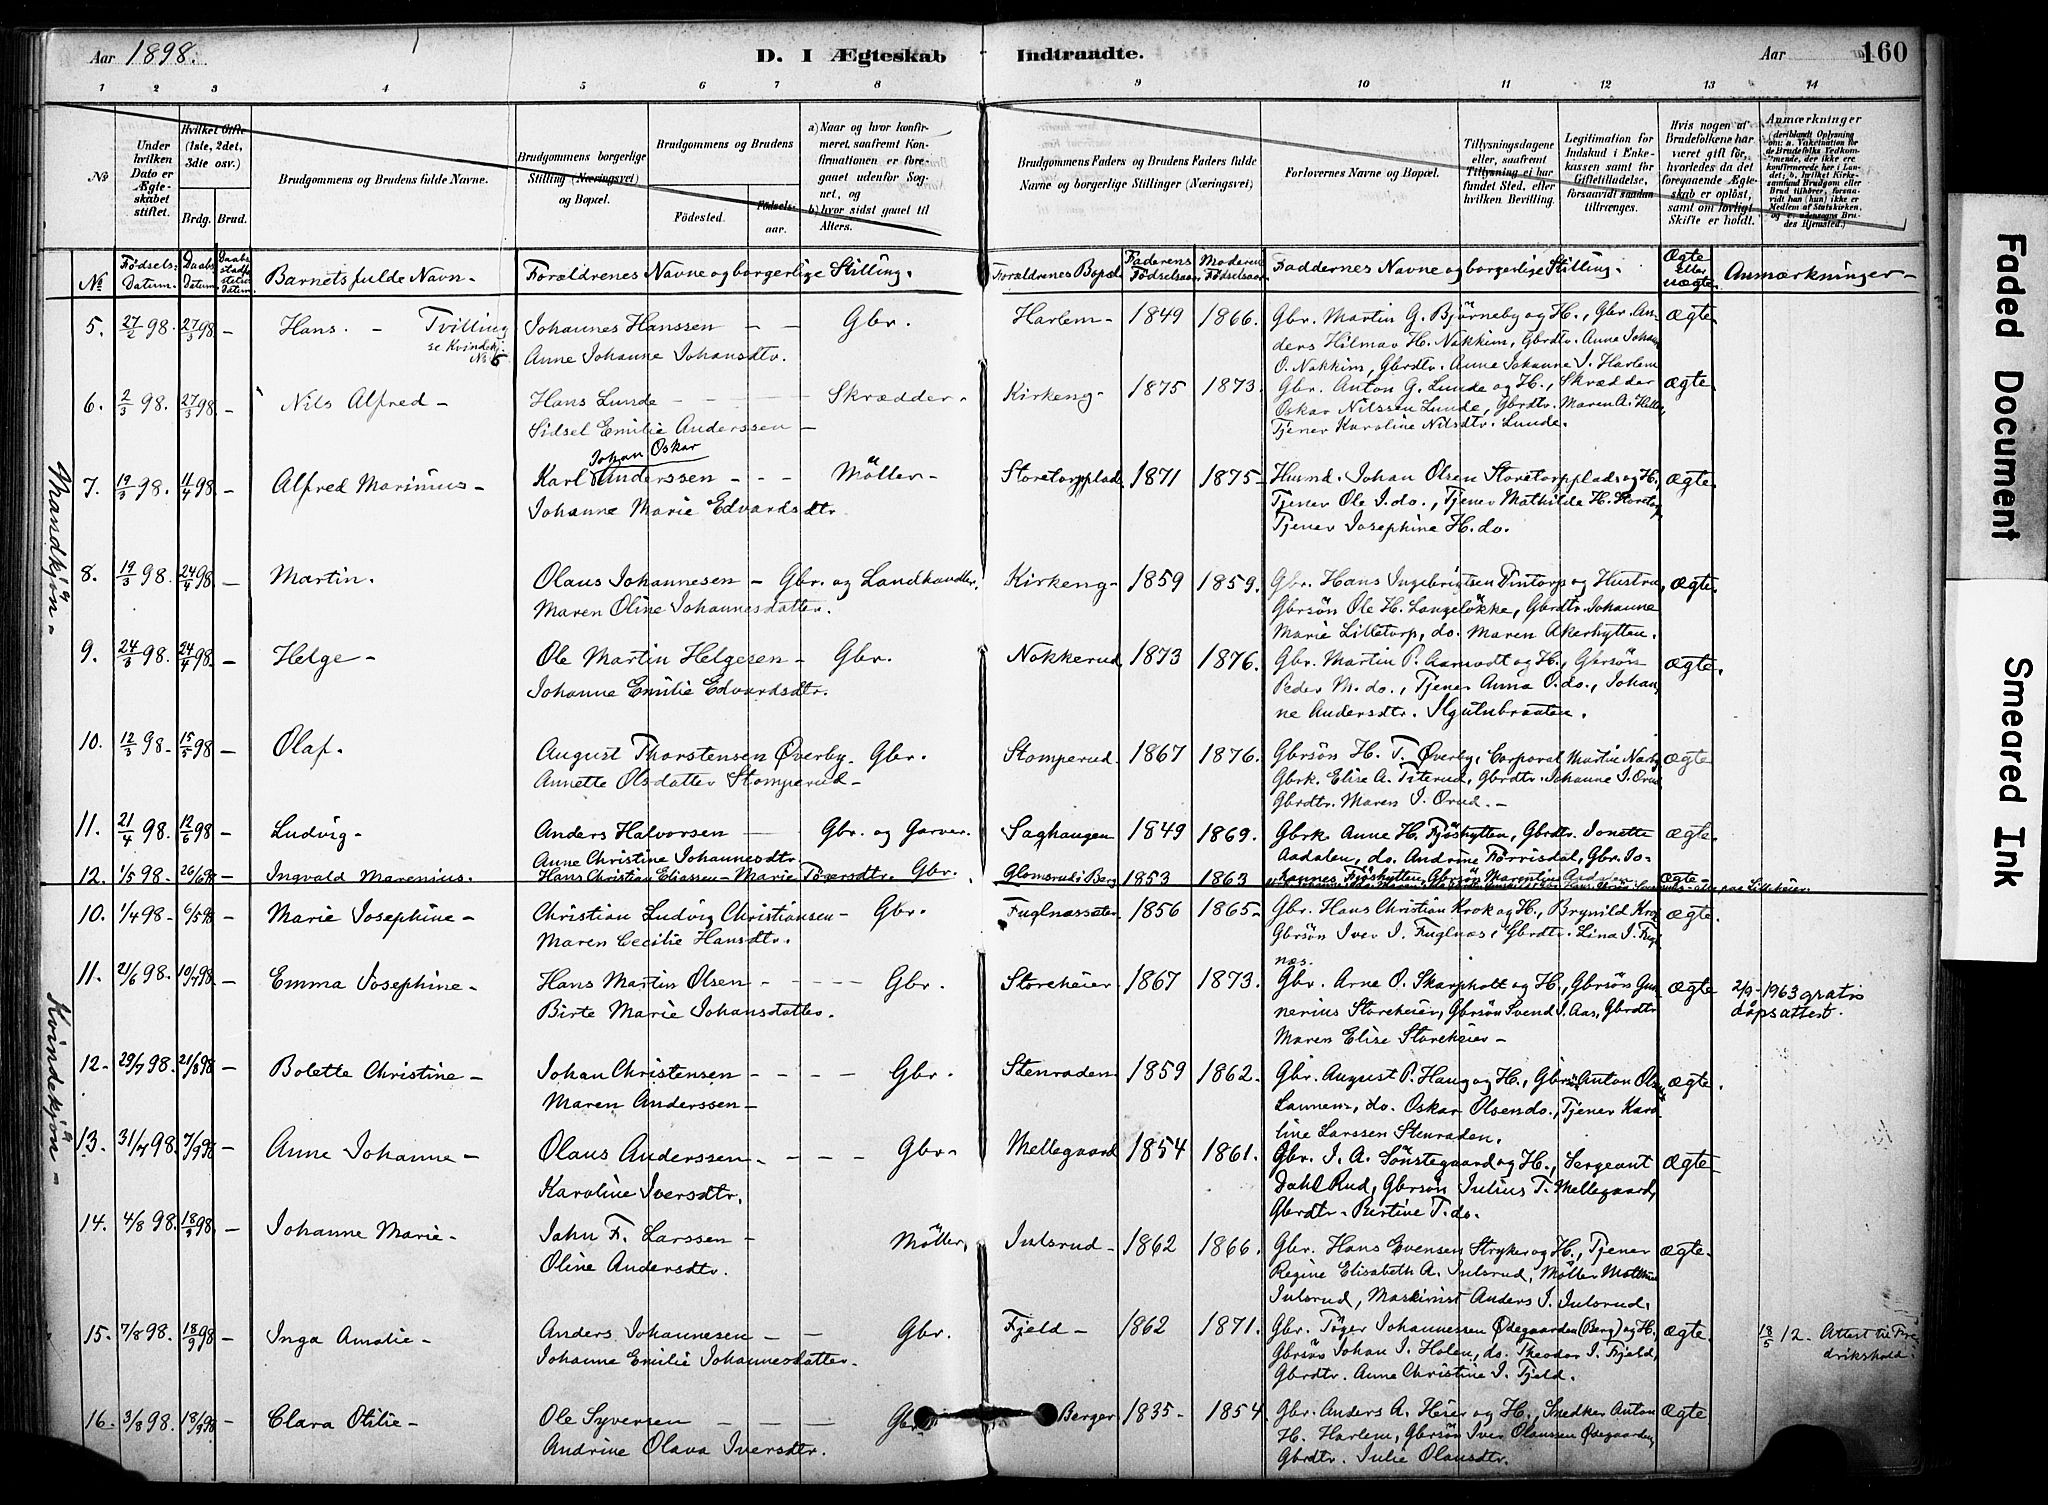 Aar 1898.
D. I Ægteskab Indtraadte.
Aar
160
1 2 3 4 5 6 7 8 9 10 11 12 13 14
No
Under hvilken Dato er Ægteskabet stiftet.
Hvilket Gifte (1ste, 2det, 3die osv.)
Brdg. Brud.
Brudgommens og Brudens fulde Navne.
Brudgommens borgerlige Stilling (Næringsvei) og Bopæl.
Brudgommens og Brudens
Fødested. Fødselsaar.
a) Naar og hvor konfirmeret, saafremt Konfirmationen er foregaaet udenfor Sognet, og
b) hvor sidst gaaet til Alters.
Brudgommens Faders og Brudens Faders fulde Navne og borgerlige Stillinger (Næringsvei)
Forlovernes Navne og Bopæl.
Tillysningsdagene eller, saafremt Tillysning ei har fundet Sted, efter hvilken Bevilling.
Legitimation for Indskud i Enkekassen samt for Giftetilladelse, forsaavidt saadan tiltrænges.
Hvis nogen af Brudefolkene har været gift før, hvorledes da det foregaaende Ægteskab er opløst, samt om lovligt Skifte er holdt.
Anmærkninger
No Fødsels-Datum. Daabs-Datum. Barnets fulde Navn- Forældrenes Navne og borgerlige Stilling. Forældrenes Bopæl Faderens Fødselsaar Moderens Fødselsaar Faddernes Navne og borgerlige Stilling. Ægte eller uægte. Anmærkninger-
Mandkjøn-
5. 27/2 98. 27/3 98 - Hans. - Tvilling se Kvindekj. No 6 Johannes Hanssen - - Gbr. Harlem- 1849 1866. Gbr. Martin G. Bjørneby og H., Gbr. An- ægte-
Anne Johanne Johansdtr. ders Hilmar H. Nokkim, Gbrdtr. Anna Johan
O. Nokkim, Gbrdtr. Anne Johanne J. Harlem
6. 2/3 98. 27/3 98 - Nils Alfred - Hans Lunde - - - - Skrædder- Kirkeng- 1875 1873. Gbr. Anton G. Lunde og H., Skrædder ægte.
Sidsel Emilie Anderssen - Oskar Nilssen Lunde, Gbrdtr. Maren A.
Tjener Karoline Nilsdtr. Lunde.
Johan Oskar
7. 19/3 98. 11/4 98 - Alfred Marinius - Karl Anderssen - - - Möller- Storetorpplads 1871 1875- Husmd. Johan Olsen Storetorpplads og H., ægte.
Johanne Marie Edvardsdtr. Tjener Ole J. do., Tjener Mathilde H. Storetorp
Tjener Josephine H. do.
8. 19/3 98. 24/4 98 - Martin. Olaus Johannesen - Gbr. og Landhandler. Kirkeng- 1859 1859. Gbr. Hans Ingebrigtsen Tintorp og Hustru, ægte.
Maren Oline Johannesdatter. Gbrsön Ole H. Langelökke, Gbrdtr. Johanne
Marie Lilletorp, do. Maren Akerhytten.
9. 24/3 98. 24/4 98 - Helge - Ole Martin Helgesen - Gbr. Nokkerud 1873 1876. Gbr. Martin P. Aamodt og H., Gbrsön ægte.
Johanne Emilie Edvardsdtr. Peder M. do., Tjener Anna O. do., Johan
ne Andersdtr.
10. 12/3 98- 15/5 98 - Olaf. August Thorstensen Øverby- Gbr. Stomperud. 1867 1876. Gbrsön H. T. Øverby, Corporal Martin Narby ægte
Annette Olsdatter Stomperud - Gbrk. Elise A. Titerud, Gbrdtr. Johanne J. Orud
Gbrdtr. Maren J. Orud. -
11. 21/4 98. 12/6 98 - Ludvig - Anders Halvorsen - Gbr. og Garver. Saghaugen 1849 1869. Gbrk. Anne H. Fjöshytten, Gbrdtr. Jonette ægte.
Anne Christine Johannesdtr. Aadalen, do. Andrine Förrisdal, Gbr. Jo-
12. 1/5 98. 26/6 98 - Ingvald Marenius. Hans Christian Eliassen - Marie Tøgersdtr. Gbr. Glomsrud i Berg 1853 1863 hannes Fjöshytten, Gbrsön Marentius Aadalen ægte-
Kvindekjøn-
10. 1/4 98- 6/5 98 - Marie Josephine - Christian Ludvig Christiansen - Gbr. Fuglnessæter 1856 1865- Gbr. Hans Christian Krok og H., Brynild Krok ægte.
Maren Cecilie Hansdtr. Gbrsön Iver J. Fuglnæs, Gbrdtr. Lina J. Fugl
næs.
11. 21/6 98. 10/7 98 - Emma Josephine - Hans Martin Olsen - - - - Gbr. Storeheier 1867 1873. Gbr. Arne O. Skarpholt og H., Gbrsön Gun- ægte 2/9-1963 gratis
Birte Marie Johansdatter. nerius Storeheier, Gbrsön Svend J. Aas, Gbrdtr dåpsattest.
Maren Elise Storeheier -
12- 29/7 98. 21/8 98 - Bolette Christine - Johan Christensen - - - - Gbr. Stenraden. 1859 1862. Gbr. August P. Haug og H., Gbrsön Anton Olsen ægte.
Maren Anderssen - do. Oskar Olsen do., Tjener Karo
line Larssen Stenraden.
13. 31/7 98. 7/9 98 - Anne Johanne - Olaus Anderssen - - - - Gbr- Mellegaard 1854 1861. Gbr. J. A. Sönstegaard og H., Sergeant ægte-
Karoline Iversdtr. Dahl Rud, Gbrsön Julius T. Mellegaard,
Gbrdtr- Bertine T. do.
14. 4/8 98. 18/9 98. - Johanne Marie - John F. Larssen - Möller. Julsrud - 1862 1866. Gbr. Hans Evensen Stryker og H., Tjener ægte-
Oline Andersdtr. Regine Elisabeth A. Julsrud, Möller Mathias
Julsrud, Maskinist Anders J. Julsrud.
15. 7/8 98. 18/9 98 - Inga Amalie - Anders Johannesen - - Gbr. Fjeld - 1862 1871. Gbr. Töger Johannessen Ødegaarden (Berg) og H. ægte. 18/5 12. Attest til Fre
Johanne Emilie Johannesdatter- Gbrsön Johan J. Holen, do. Theodor J. Fjeld, drikshald.
Gbrdtr. Anne Christine J. Fjeld.
16- 3/8 98. 18/9 98 - Clara Otilie - Ole Syversen - - - Gbr. Berger 1835- 1854. Gbr. Anders A. Heier og H., Snedker Anton ægte.
Andrine Olava Iversdtr. H. Harlem, Gbrsön Iver Olaussen Ødegaarden,
Gbrdtr. Julie Olausdtr.
Faded Document
Smeared Ink